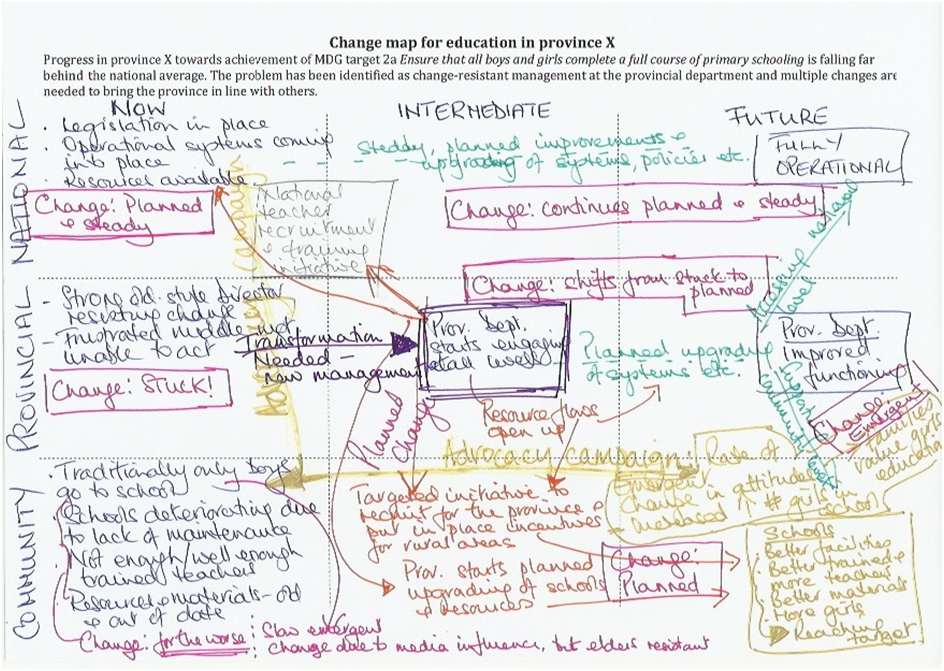 Change map for education in province X
Progress in province X towards achievement of MDG target 2a Ensure that all boys and girls complete a full course of primary schooling is falling far
behind the national average. The problem has been identified as change-resistant management at the provincial department and multiple changes are
needed to bring the province in line with others.
NOW
INTERMEDIATE
FUTURE
NATIONAL
· Legislation in place
· Operational systems coming
into place
· Resources available
Change: Planned
& steady
Steady, planned improvements &
upgrading of systems, policies etc.
FULLY
OPERATIONAL
National
teacher
recruitment
& training
initiative
Change: continues planned & steady
Change: shifts from stuck to
planned
PROVINCIAL
- Strong old-style director
resisting change
- Frustrated middle mgt
unable to act
Change: STUCK!
Transformation
Needed –
new management
Prov. Dept.
starts engaging
at all levels
Planned upgrading
of systems etc.
Prov. Dept.
Improved
functioning
Accessing national
level
Support
community level
Planned
Change
Resource flows
open up
Change:
Emergent
families
value girls'
education
Advocacy campaign: Rate of
Emergent
change in attitude
increased ↑ # girls in
school
COMMUNITY
· Traditionally only boys
go to school
· Schools deteriorating due
to lack of maintenance
· Not enough/well enough
trained teachers
· Resources & materials – old
& out of date
Change: for the worse: Slow emergent
change due to media influence, but elders resistant
Targeted initiative to
recruit for the province &
put in place incentives
for rural areas
Prov. starts planned
upgrading of schools
& Resources
Change:
Planned
Schools
· Better facilities
· Better trained &
more teachers
· Better materials
· More girls
Reaching
target